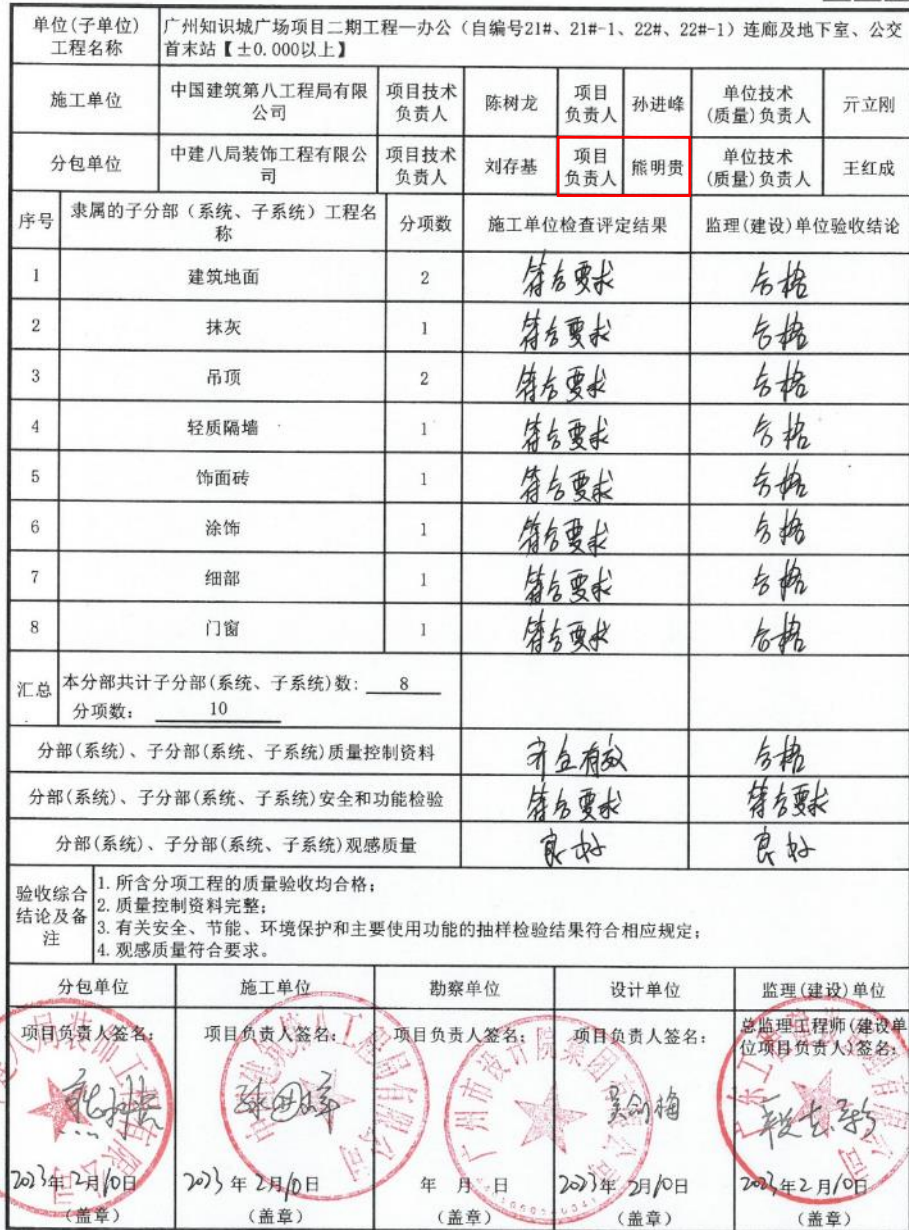 单位(子单位)
工程名称
广州知识城广场项目二期工程—办公（自编号21#、21#-1、22#、22#-1）连廊及地下室、公交
首末站【±0.000以上】
施工单位
中国建筑第八工程局有限
公司
项目技术
负责人
陈树龙
项目
负责人
孙进峰
单位技术
(质量)负责人
亓立刚
分包单位
中建八局装饰工程有限公
司
项目技术
负责人
刘存基
项目
负责人
熊明贵
单位技术
(质量)负责人
王红成
序号
隶属的子分部（系统、子系统）工程名
称
分项数
施工单位检查评定结果
监理(建设)单位验收结论
1 建筑地面 2 符合要求 合格
2 抹灰 1 符合要求 合格
3 吊顶 2 符合要求 合格
4 轻质隔墙 1 符合要求 合格
5 饰面砖 1 符合要求 合格
6 涂饰 1 符合要求 合格
7 细部 1 符合要求 合格
8 门窗 1 符合要求 合格
汇总
本分部共计子分部(系统、子系统)数: 8
分项数: 10
分部(系统)、子分部(系统、子系统)质量控制资料 齐全有效 合格
分部(系统)、子分部(系统、子系统)安全和功能检验 符合要求 符合要求
分部(系统)、子分部(系统、子系统)观感质量 良好 良好
验收综合
结论及备
注
1. 所含分项工程的质量验收均合格;
2. 质量控制资料完整;
3. 有关安全、节能、环境保护和主要使用功能的抽样检验结果符合相应规定;
4. 观感质量符合要求。
分包单位 施工单位 勘察单位 设计单位 监理(建设)单位
项目负责人签名: 项目负责人签名: 项目负责人签名: 项目负责人签名:
总监理工程师(建设单
位项目负责人)签名:
吴剑梅
2023年2月10日 2023年2月10日 年 月 日 2023年2月10日 2023年2月10日
(盖章) (盖章) (盖章) (盖章) (盖章)
广州市设计院集团有限公司